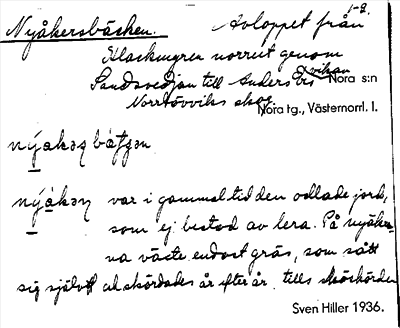 Nyåkersbäcken. Avloppet från 1-2.
Klackmyren norrut genom
Sandsvedjan till Anders Ers viken Nora s:n
Norrtövviks skog
Nora tg., Västernorrl. l.
nýakəʂ bä́ʃʒən
nýakəɳ var i gammal tid den odlade jord,
som ej bestod av lera. På nyåkrar-
na växte endast gräs, som sått
sig självt och skördades år efter år, tills
Sven Hiller 1936.